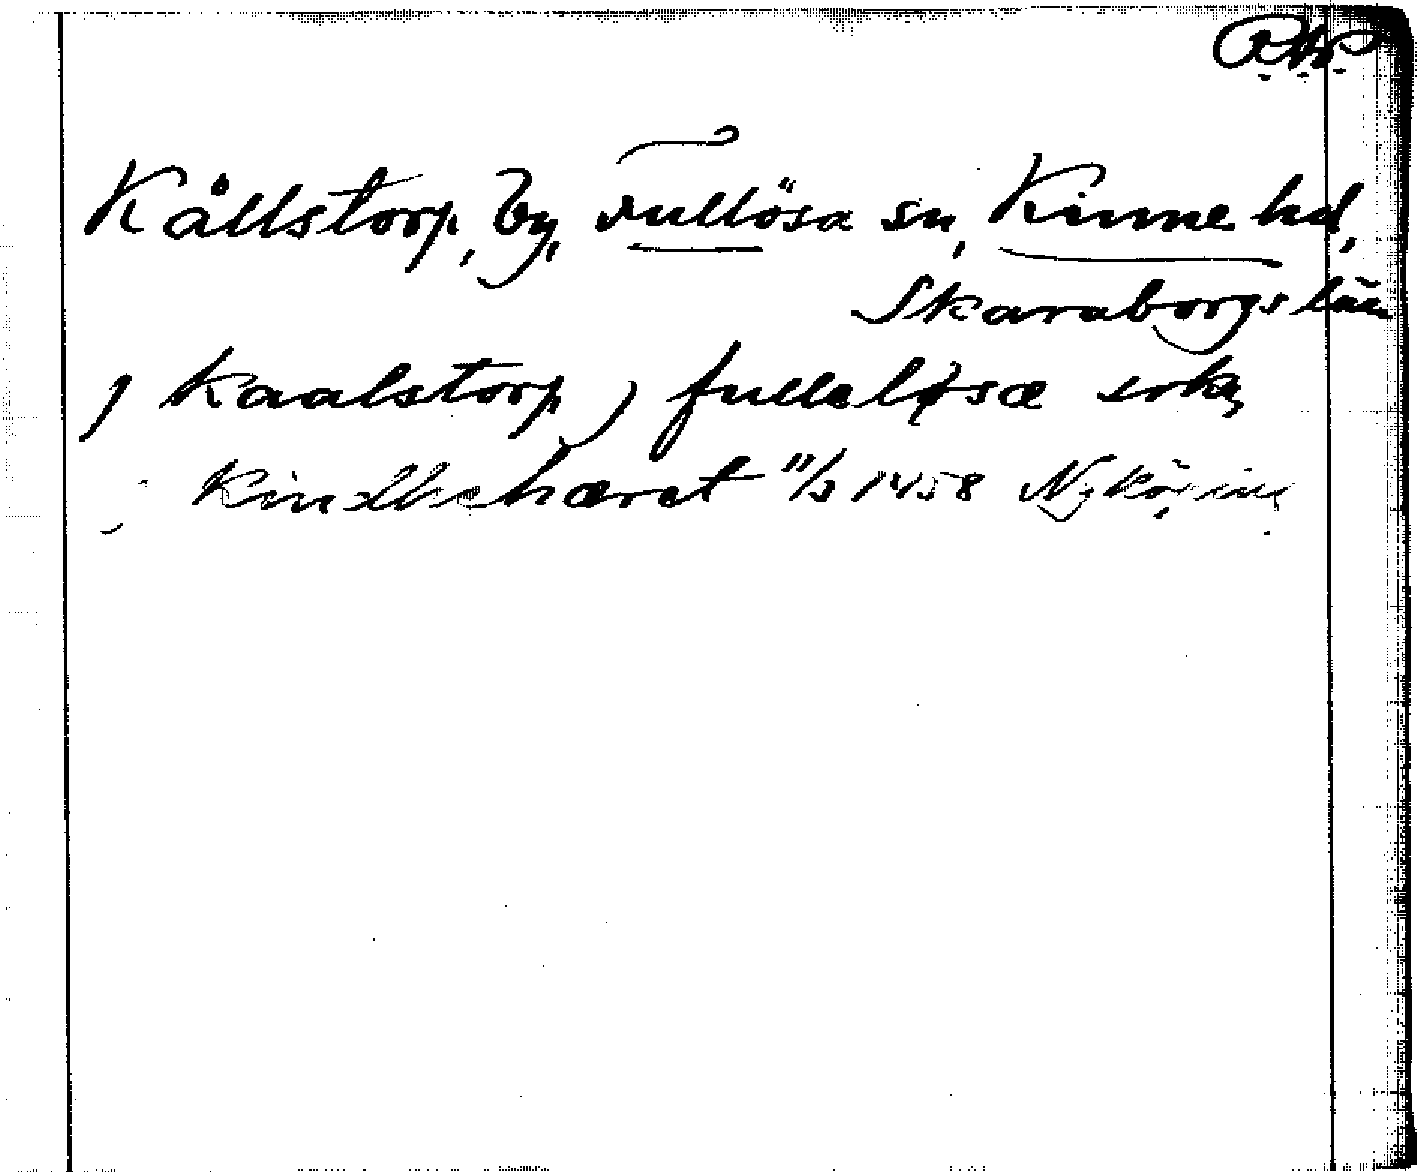 Kållstorp, by, Fullösa sn, Kinne hd,
Skaraborgs län
j Kaalstorp j fulleløsæ sokn
j Kindhehæret 11/3 1458 Nyköping